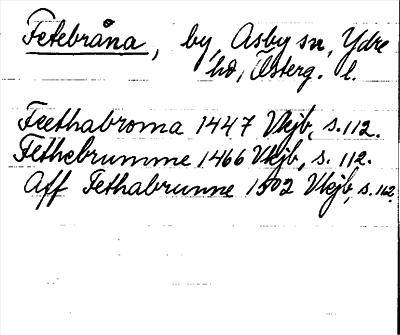 Fetebråna, by, Asby sn, Ydre
hd, Österg. l.
Feethabroma 1447 Vkjb, s. 112.
Fethebrumme 1466 Vkjb, s. 112.
Aff Fethabrunne 1502 Vkjb, s. 162.